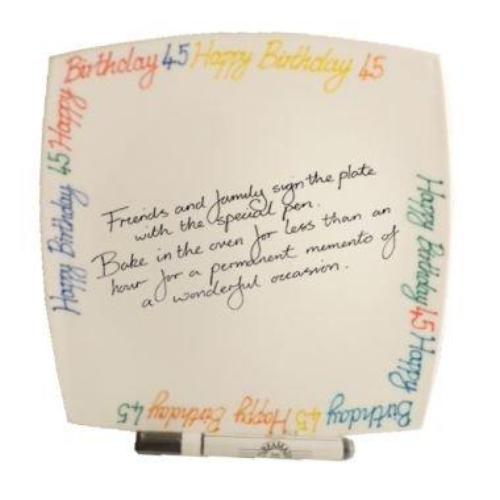 Birthday 45 Happy Birthday 45
Happy Birthday 45 Happy
Birthday 45 Happy Birthday 45
Happy Birthday 45 Happy
Friends and family sign the plate
with the special pen.
Bake in the oven for less than an
hour for a permanent memento of
a wonderful occasion.